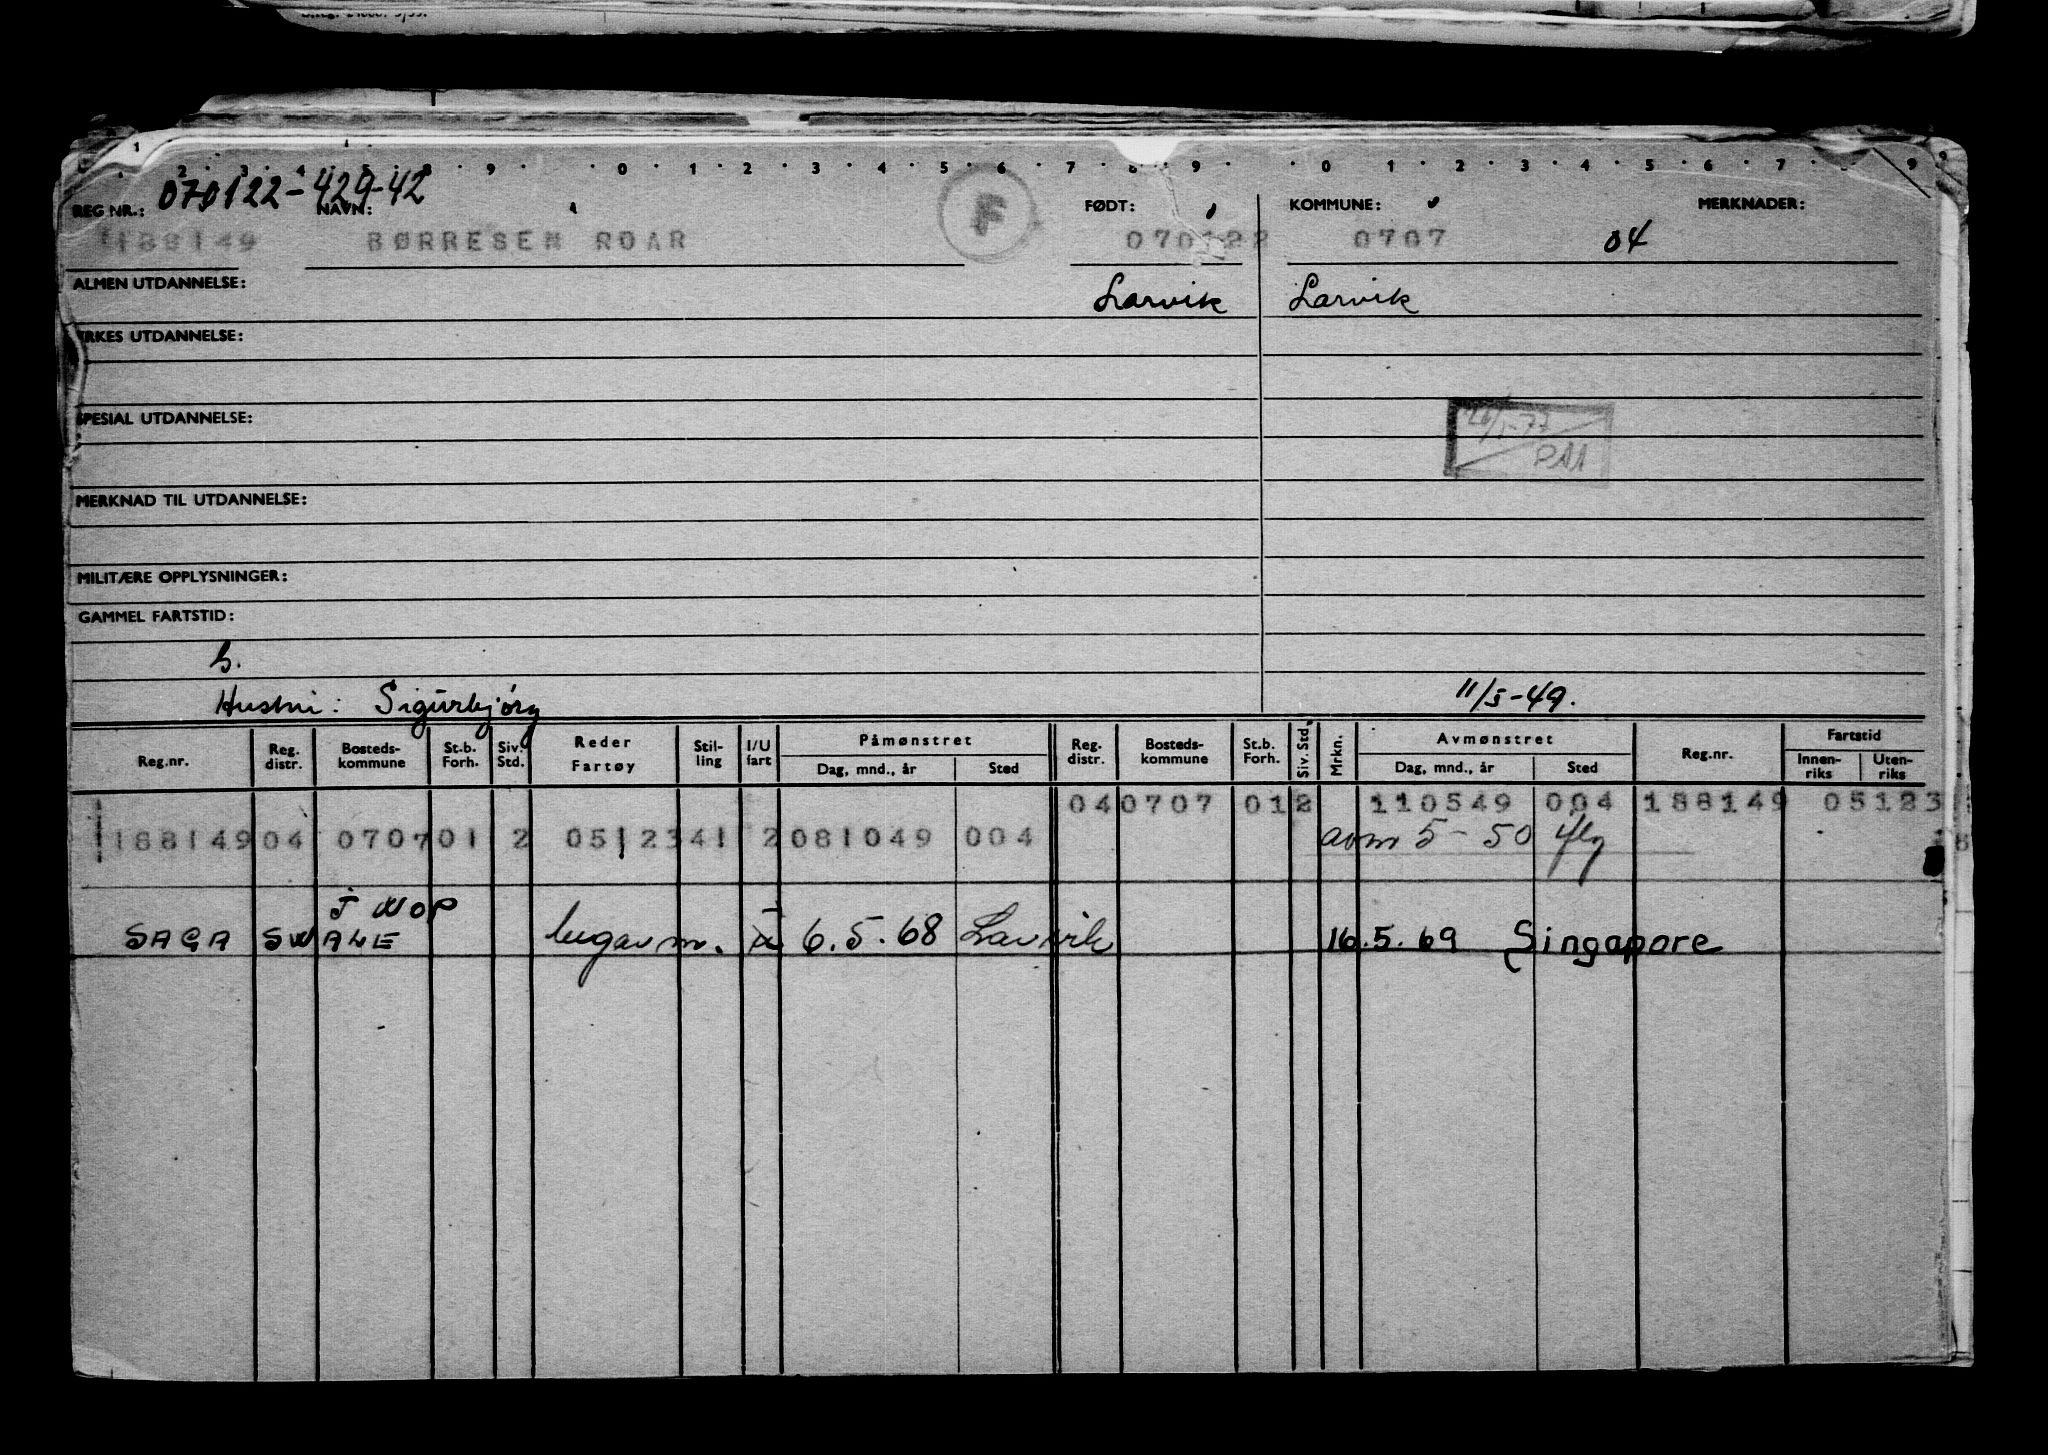 1 2 3 4 5 8 9 0 1 2 3 4 5 6 7 8 9 0 1 2 3 4 5 6 7 9
070122-429-42
REG NR.: NAVN: F FØDT: KOMMUNE: MERKNADER:
188149 BØRRESEN ROAR 070122 0707 04
ALMEN UTDANNELSE: Larvik Larvik
YRKES UTDANNELSE:
SPESIAL UTDANNELSE:
MERKNAD TIL UTDANNELSE:
MILITÆRE OPPLYSNINGER:
GAMMEL FARTSTID:
Hustru: Sigurbjórg 11/5-49.
Reg.nr. Reg. distr. Bosteds-kommune St.b. Forh. Siv. Std. Reder Fartøy Stil-ling I/U fart Påmønstret Dag, mnd., år Sted Reg. distr. Bosteds-kommune St.b. Forh. Siv. Std. Mrkn. Avmønstret Dag, mnd., år Sted Reg.nr. Fartstid Innen-riks Uten-riks
04 0707 01 2 110549 004 188149 05123
188149 04 0707 01 2 05123 41 2 081049 004 avm 5-50 fly
SAGA SWALE lugarm. 6.5.68 Larvik 16.5.69 Singapore